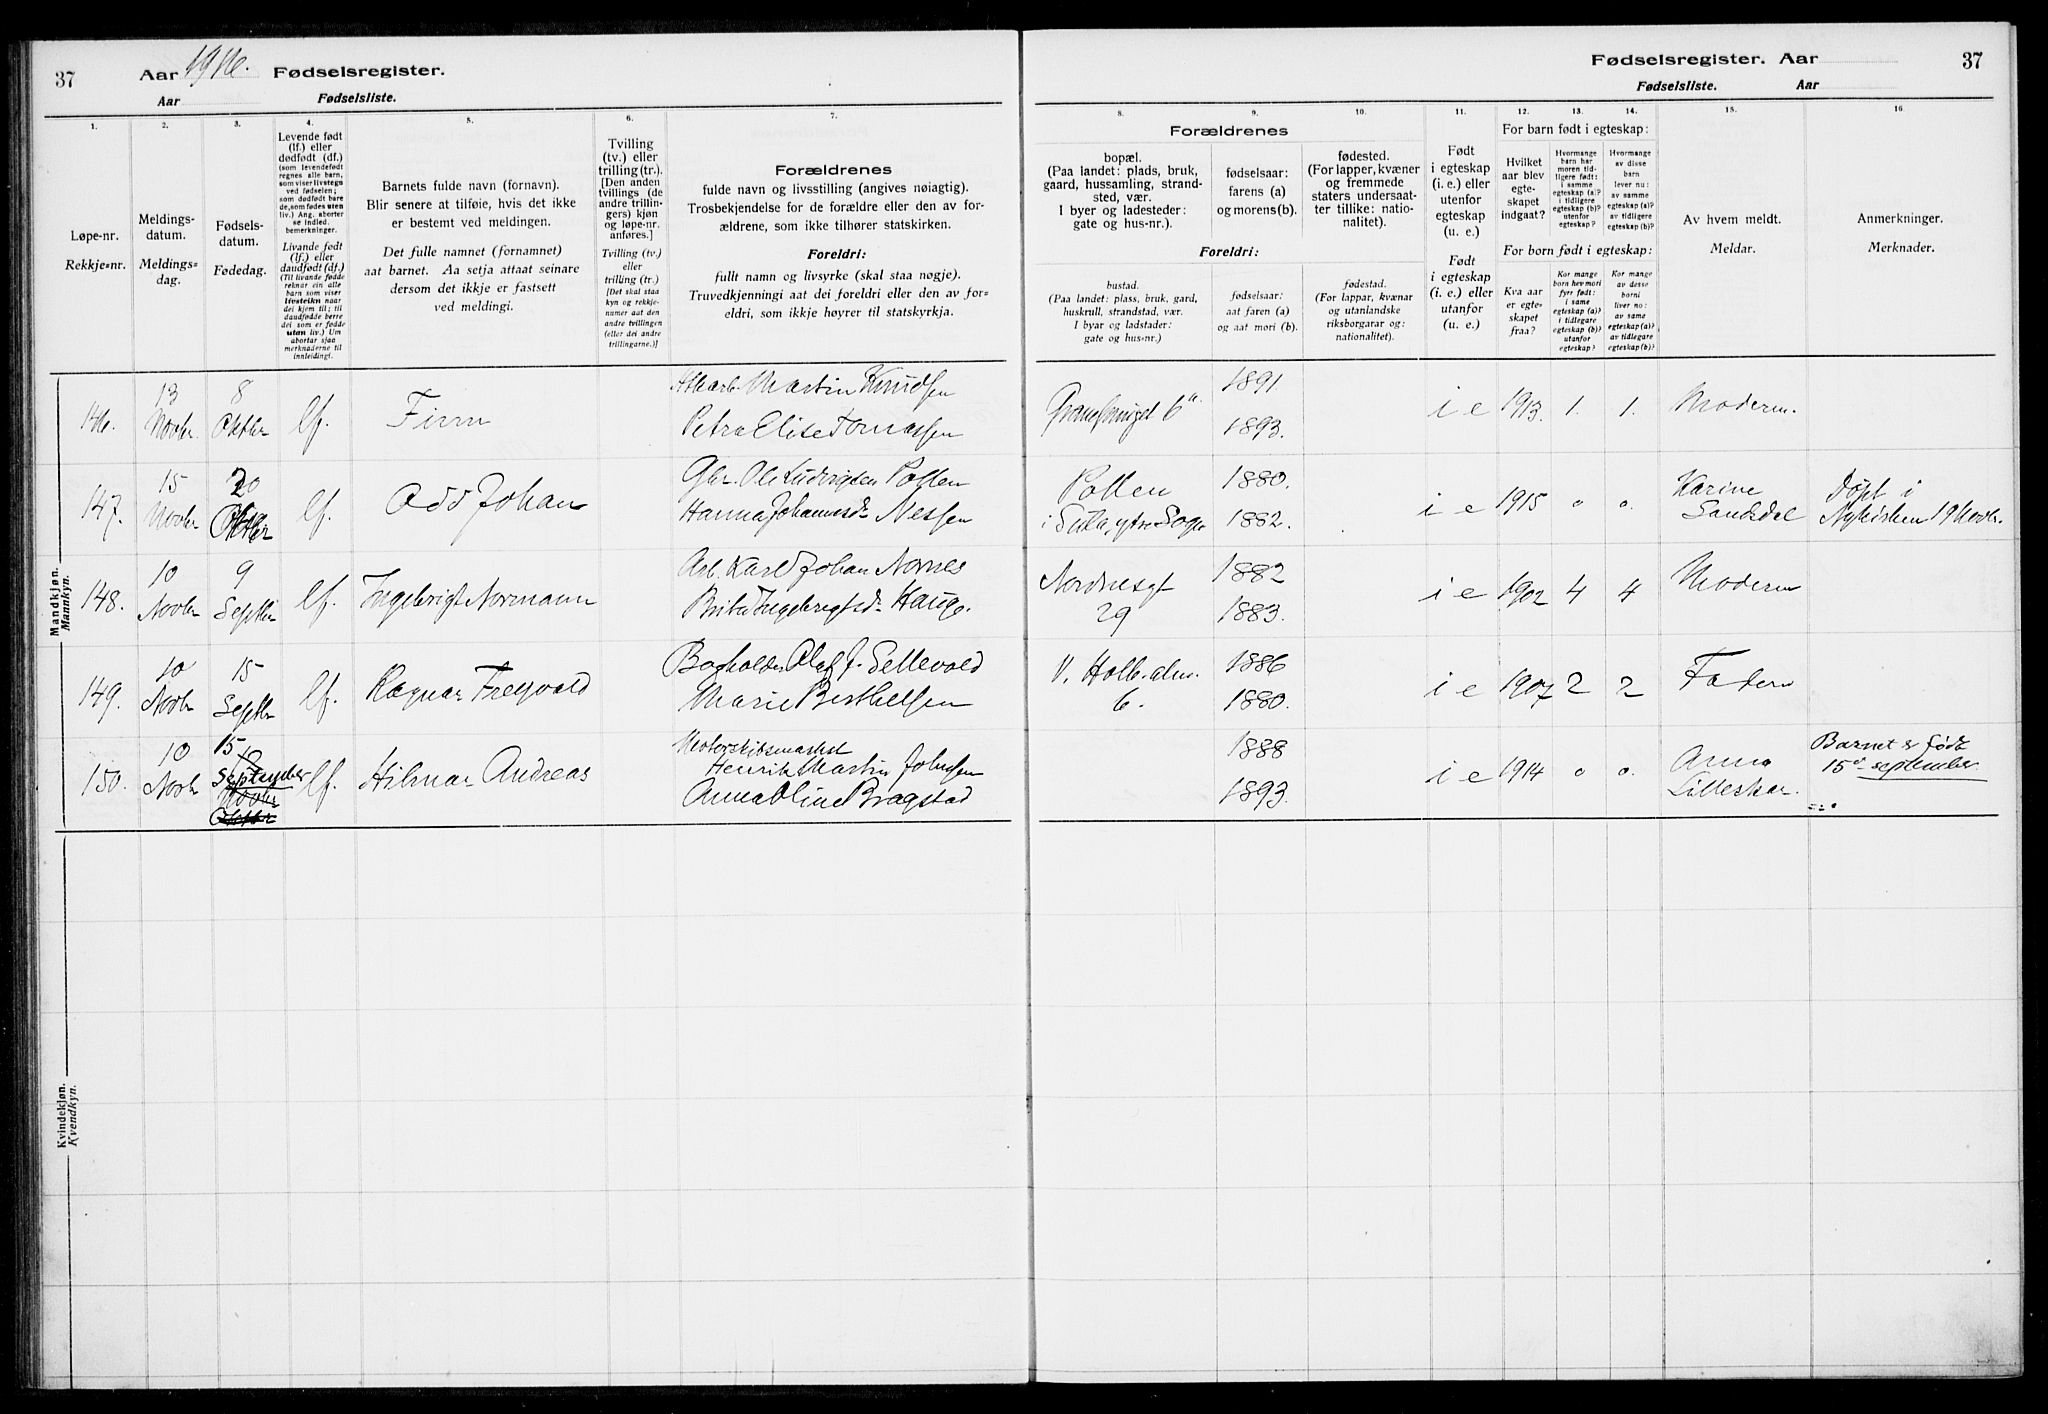 37 Aar 1916. Fødselsregister.
Aar Fødselsliste.
1. 2. 3. 4. 5. 6. 7.
Løpe-nr.
Rekkje=nr.
Meldings-
datum.
Meldings=
dag.
Fødsels-
datum.
Fødedag.
Levende født
(lf.) eller
dødfødt (df.)
(som levendefødt
regnes alle barn,
som viser livstegn
ved fødselen;
som dødfødt bare
de, som fødes uten
liv.) Ang. aborter
se indled.
bemerkninger.
Livande født
(lf.) eller
daudfødt (df.)
(Til livande fødde
reknar ein alle
barn som viser
livsteikn naar
dei kjem til; til
daudfødde berre
dei som er fødde
utan liv.) Um
abortar sjaa
merknaderne til
innleidingi.
Barnets fulde navn (fornavn).
Blir senere at tilføie, hvis det ikke
er bestemt ved meldingen.
Det fulle namnet (fornamnet)
aat barnet. Aa setja attaat seinare
dersom det ikkje er fastsett
ved meldingi.
Tvilling
(tv.) eller
trilling (tr.).
[Den anden
tvillings (de
andre trillin-
gers) kjøn
og løpe-nr.
anføres.]
Tvilling (tv.)
eller
trilling (tr.)
[Det skal staa
kyn og rekkje-
numer aat den
andre tvillingen
(eller dei andre
trillingarne.)]
Forældrenes
fulde navn og livsstilling (angives nøiagtig).
Trosbekjendelse for de forældre eller den av for-
ældrene, som ikke tilhører statskirken.
Foreldri:
fullt namn og livsyrke (skal staa nøgje).
Truvedkjenningi aat dei foreldri eller den av for=
eldri, som ikkje høyrer til statskyrkja.
Mandkjøn.
Mannkyn.
146. 13 Novbr. 8 Oktbr lf. Finn
Martin Knudsen
Petra Elise Tomassen
147. 15 Novbr 20 Oktbr lf. Odd Johan
Gbr. Ole Ludvigsen Pollen
Hanna Johannesdr Nessen
148. 10 Novbr 9 Septbr lf. Ingebrigt Normann
Arb. Karl Johan Nornes
Brita Ingebrigtsdr Hauge.
149. 10 Novbr 15 Septbr lf. Ragnar Freyvald
Bogholder Olaf J. Sellevold
Marie Berthelsen
150. 10 Novbr 15 September Novbr Oktbr lf. Hilmar Andreas
Henrik Martin Johnsen
Anna Oline Bragstad
Kvindekjøn.
Kvendkyn.
Fødselsregister. Aar 37
Fødselsliste. Aar
8. 9. 10. 11. 12. 13. 14. 15. 16.
Forældrenes
bopæl.
(Paa landet: plads, bruk,
gaard, hussamling, strand-
sted, vær.
I byer og ladesteder:
gate og hus-nr.).
fødselsaar:
farens (a)
og morens (b).
fødested.
(For lapper, kvæner
og fremmede
staters undersaat-
ter tillike: natio-
nalitet).
Foreldri:
bustad.
(Paa landet: plass, bruk, gard,
huskrull, strandstad, vær.
I byar og ladstader:
gate og hus=nr.)
fødselsaar:
aat faren (a)
og aat mori (b).
fødestad.
(For lappar, kvænar
og utanlandske
riksborgarar og:
nationalitet).
Født
i egteskap
(i. e.) eller
utenfor
egteskap
(u. e.)
Født
i egteskap
(i. e.) eller
utanfor
(u. e.)
For barn født i egteskap:
Hvilket
aar blev
egte-
skapet
indgaat?
Hvormange
barn har
moren tid-
ligere født:
i samme
egteskap (a)?
i tidligere
egteskap (b)?
utenfor
egteskap?
Hvormange
av disse
barn
lever nu:
av samme
egteskap (a)?
av tidligere
egteskap (b)?
For born født i egteskap:
Kva aar
er egte=
skapet
fraa?
Kor mange
born hev mori
fyrr født:
i same
egteskap (a)?
i tidlegare
egteskap (b)?
utanfor
egteskap?
Kor mange
av desse
borni
liver no:
av same
egteskap (a)?
av tidlegare
egteskap (b)?
Av hvem meldt.
Meldar.
Anmerkninger.
Merknader.
1891. 1893. i e 1913. 1. 1. Moderen.
Pollen
i Sula, ytre Sogn
1880. 1882. i e 1915 0 0.
Karine
Sandsdal
Døpt i
Nykirken 19 Novbr.
Nordnesgt
29
1882 1883. i e 1902 4 4 Moderen
6. 1886 1880. i e 1907 2 2 Faderen
1888 1893. i e 1914 0 0.
Anna
Lilleskar.
Barnet er født
15de september